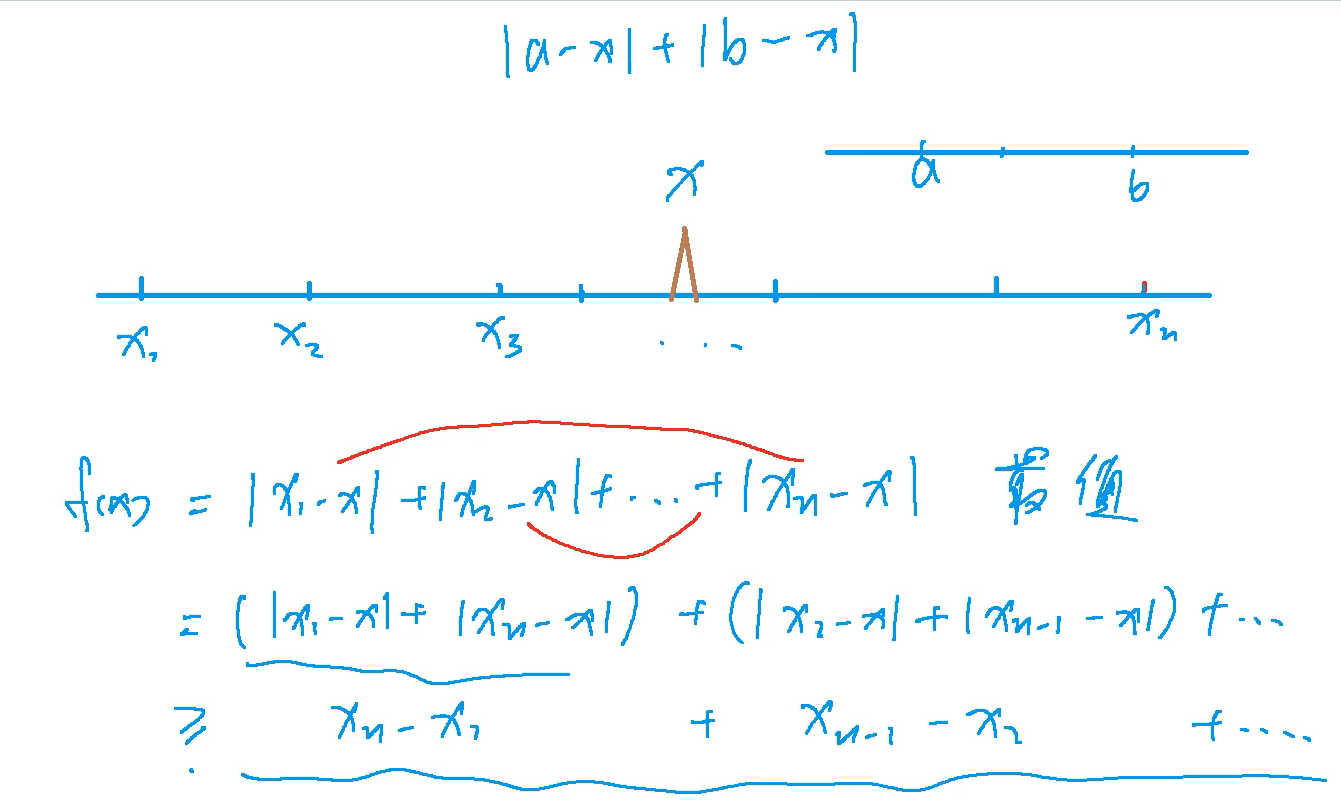 |a-x|+|b-x|
a b
x
x₁ x₂ x₃ ... xₙ
f(x) = |x₁-x|+|x₂-x|+...+|xₙ-x| 最值
= (|x₁-x|+|xₙ-x|) + (|x₂-x|+|xₙ₋₁-x|) +...
≥ xₙ-x₁ + xₙ₋₁-x₂ +....